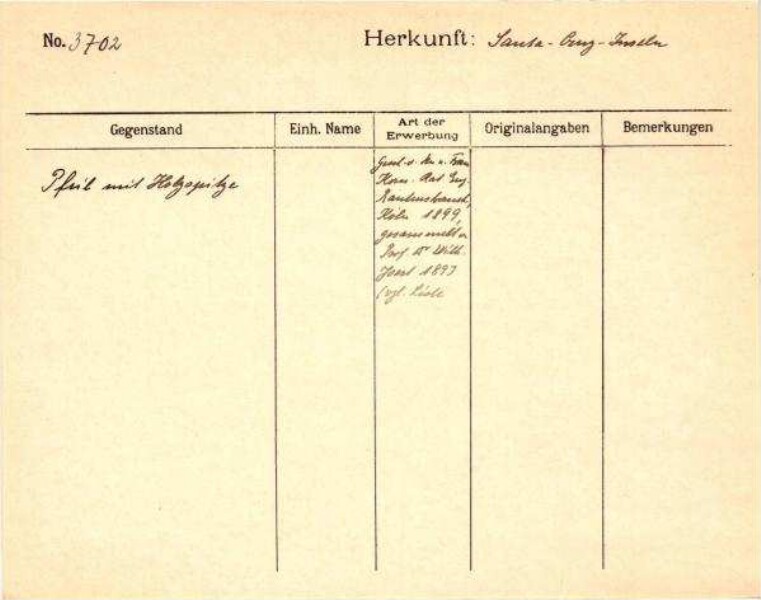 No. 3702 Herkunft: Santa-Cruz-Inseln
Gegenstand Einh. Name Art der Erwerbung Originalangaben Bemerkungen
Pfeil mit Holzspitze
Gesch. v. Hn u. Frau
Kom. Rat Eug.
Rautenstrauch,
Köln 1899,
gesammelt v.
Prof Dr Wilh.
Joest 1897
(vgl. Liste